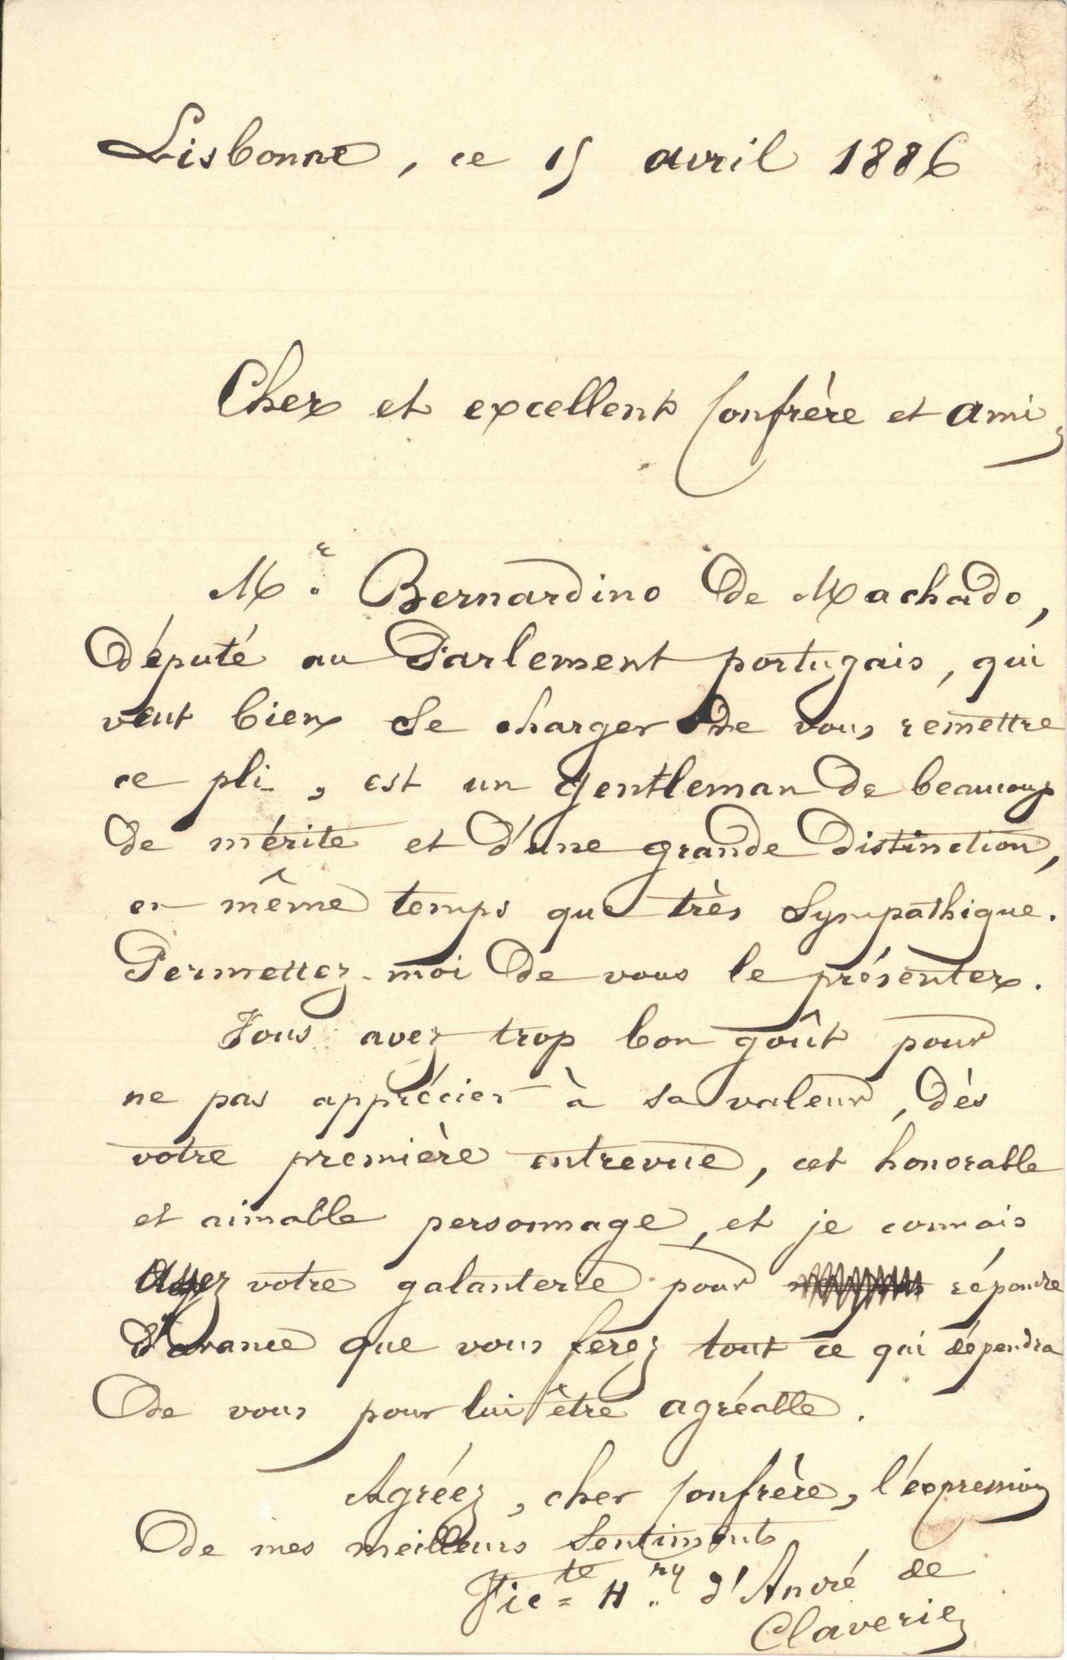 Lisbonne, ce 15 avril 1886
Cher et excellent Confrère et ami,
Mr. Bernardino de Machado,
député au Parlement portugais, qui
veut bien se charger de vous remettre
ce pli, est un gentleman de beaucoup
de mérite et d'une grande distinction,
en même temps que très sympathique.
Permettez-moi de vous le présenter.
Vous avez trop bon goût pour
ne pas apprécier à sa valeur, dès
votre première entrevue, cet honorable
et aimable personnage, et je connais
assez votre galanterie pour répondre
d'avance que vous ferez tout ce qui dépendra
de vous pour lui être agréable.
Agréez, cher Confrère, l'expression
de mes meilleurs sentiments
Victe Hry d'André de
Claverie